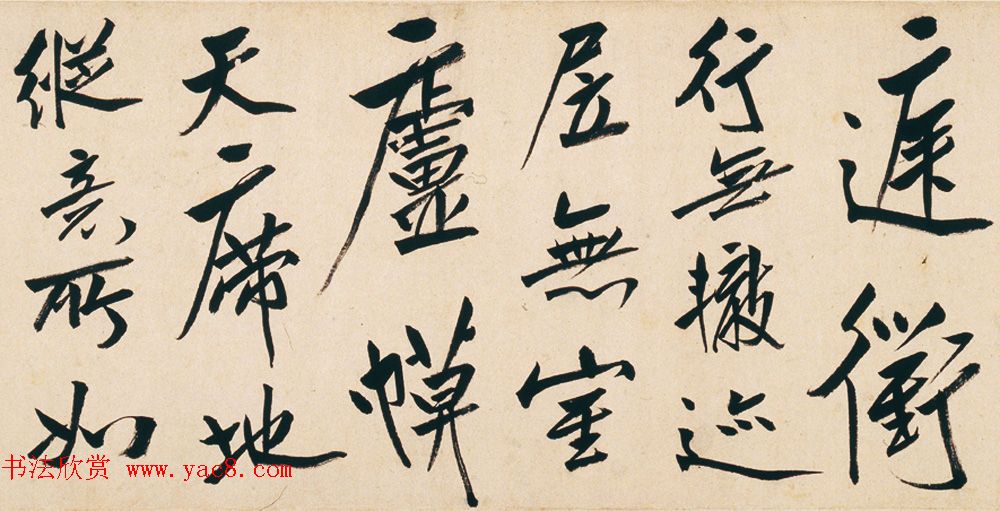 庭衢
行無轍迹
居無室
廬幙
天席地
縱意所如
书法欣赏 www.yac8.com